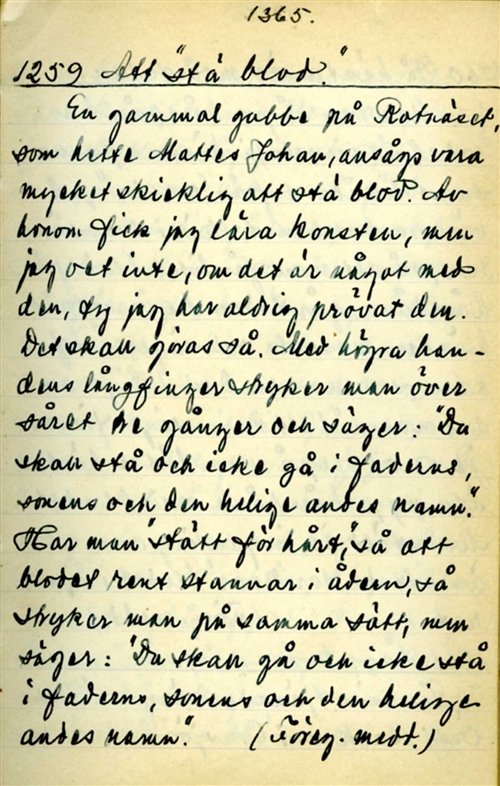 1365.
1259 Att "stå blod."
En gammal gubbe på Rotnäset,
som hette Mattes Johan, ansågs vara
mycket skicklig att stå blod. Av
honom fick jag lära konsten, men
jag vet inte, om det är något med
den, ty jag har aldrig prövat den.
Det skall göras så. Med högra han-
dens långfinger stryker man över
såret tre gånger och säger: "Du
skall stå och icke gå i faderns,
sonens och den helige andes namn."
Har man "stått för hårt," så att
blodet rent stannar i ådern, så
stryker man på samma sätt, men
säger: "Du skall gå och icke stå
i faderns, sonens och den helige
andes namn." (Föreg. medd.)